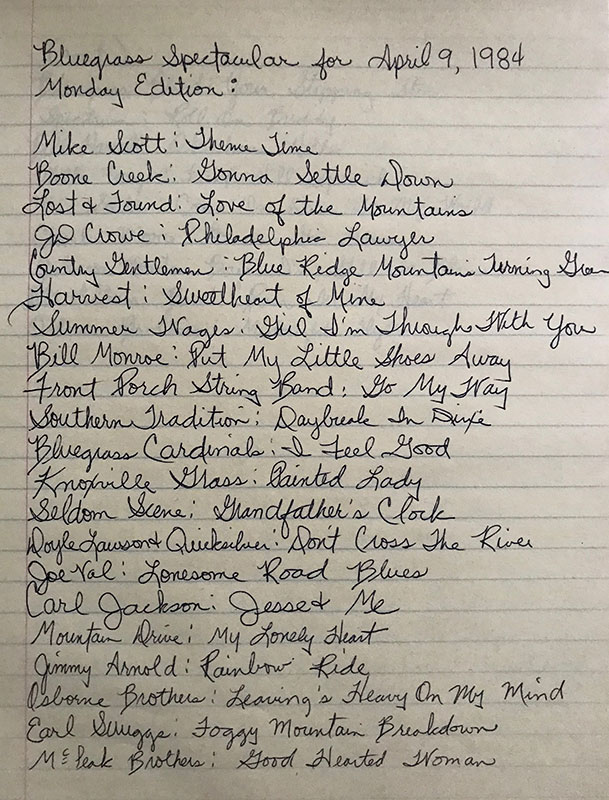 Bluegrass Spectacular for April 9, 1984
Monday Edition:
Mike Scott: Theme Time
Boone Creek: Gonna Settle Down
Lost & Found: Love of the Mountains
JD Crowe: Philadelphia Lawyer
Country Gentlemen: Blue Ridge Mountains Turning Green
Harvest: Sweetheart of Mine
Summer Wages: Girl I'm Through With You
Bill Monroe: Put My Little Shoes Away
Front Porch String Band: Go My Way
Southern Tradition: Daybreak In Dixie
Bluegrass Cardinals: I Feel Good
Knoxville Grass: Painted Lady
Seldom Scene: Grandfather's Clock
Doyle Lawson & Quicksilver: Don't Cross The River
Joe Val: Lonesome Road Blues
Carl Jackson: Jesse & Me
Mountain Drive: My Lonely Heart
Jimmy Arnold: Rainbow Ride
Osborne Brothers: Leaving's Heavy On My Mind
Earl Scruggs: Foggy Mountain Breakdown
McPeak Brothers: Good Hearted Woman